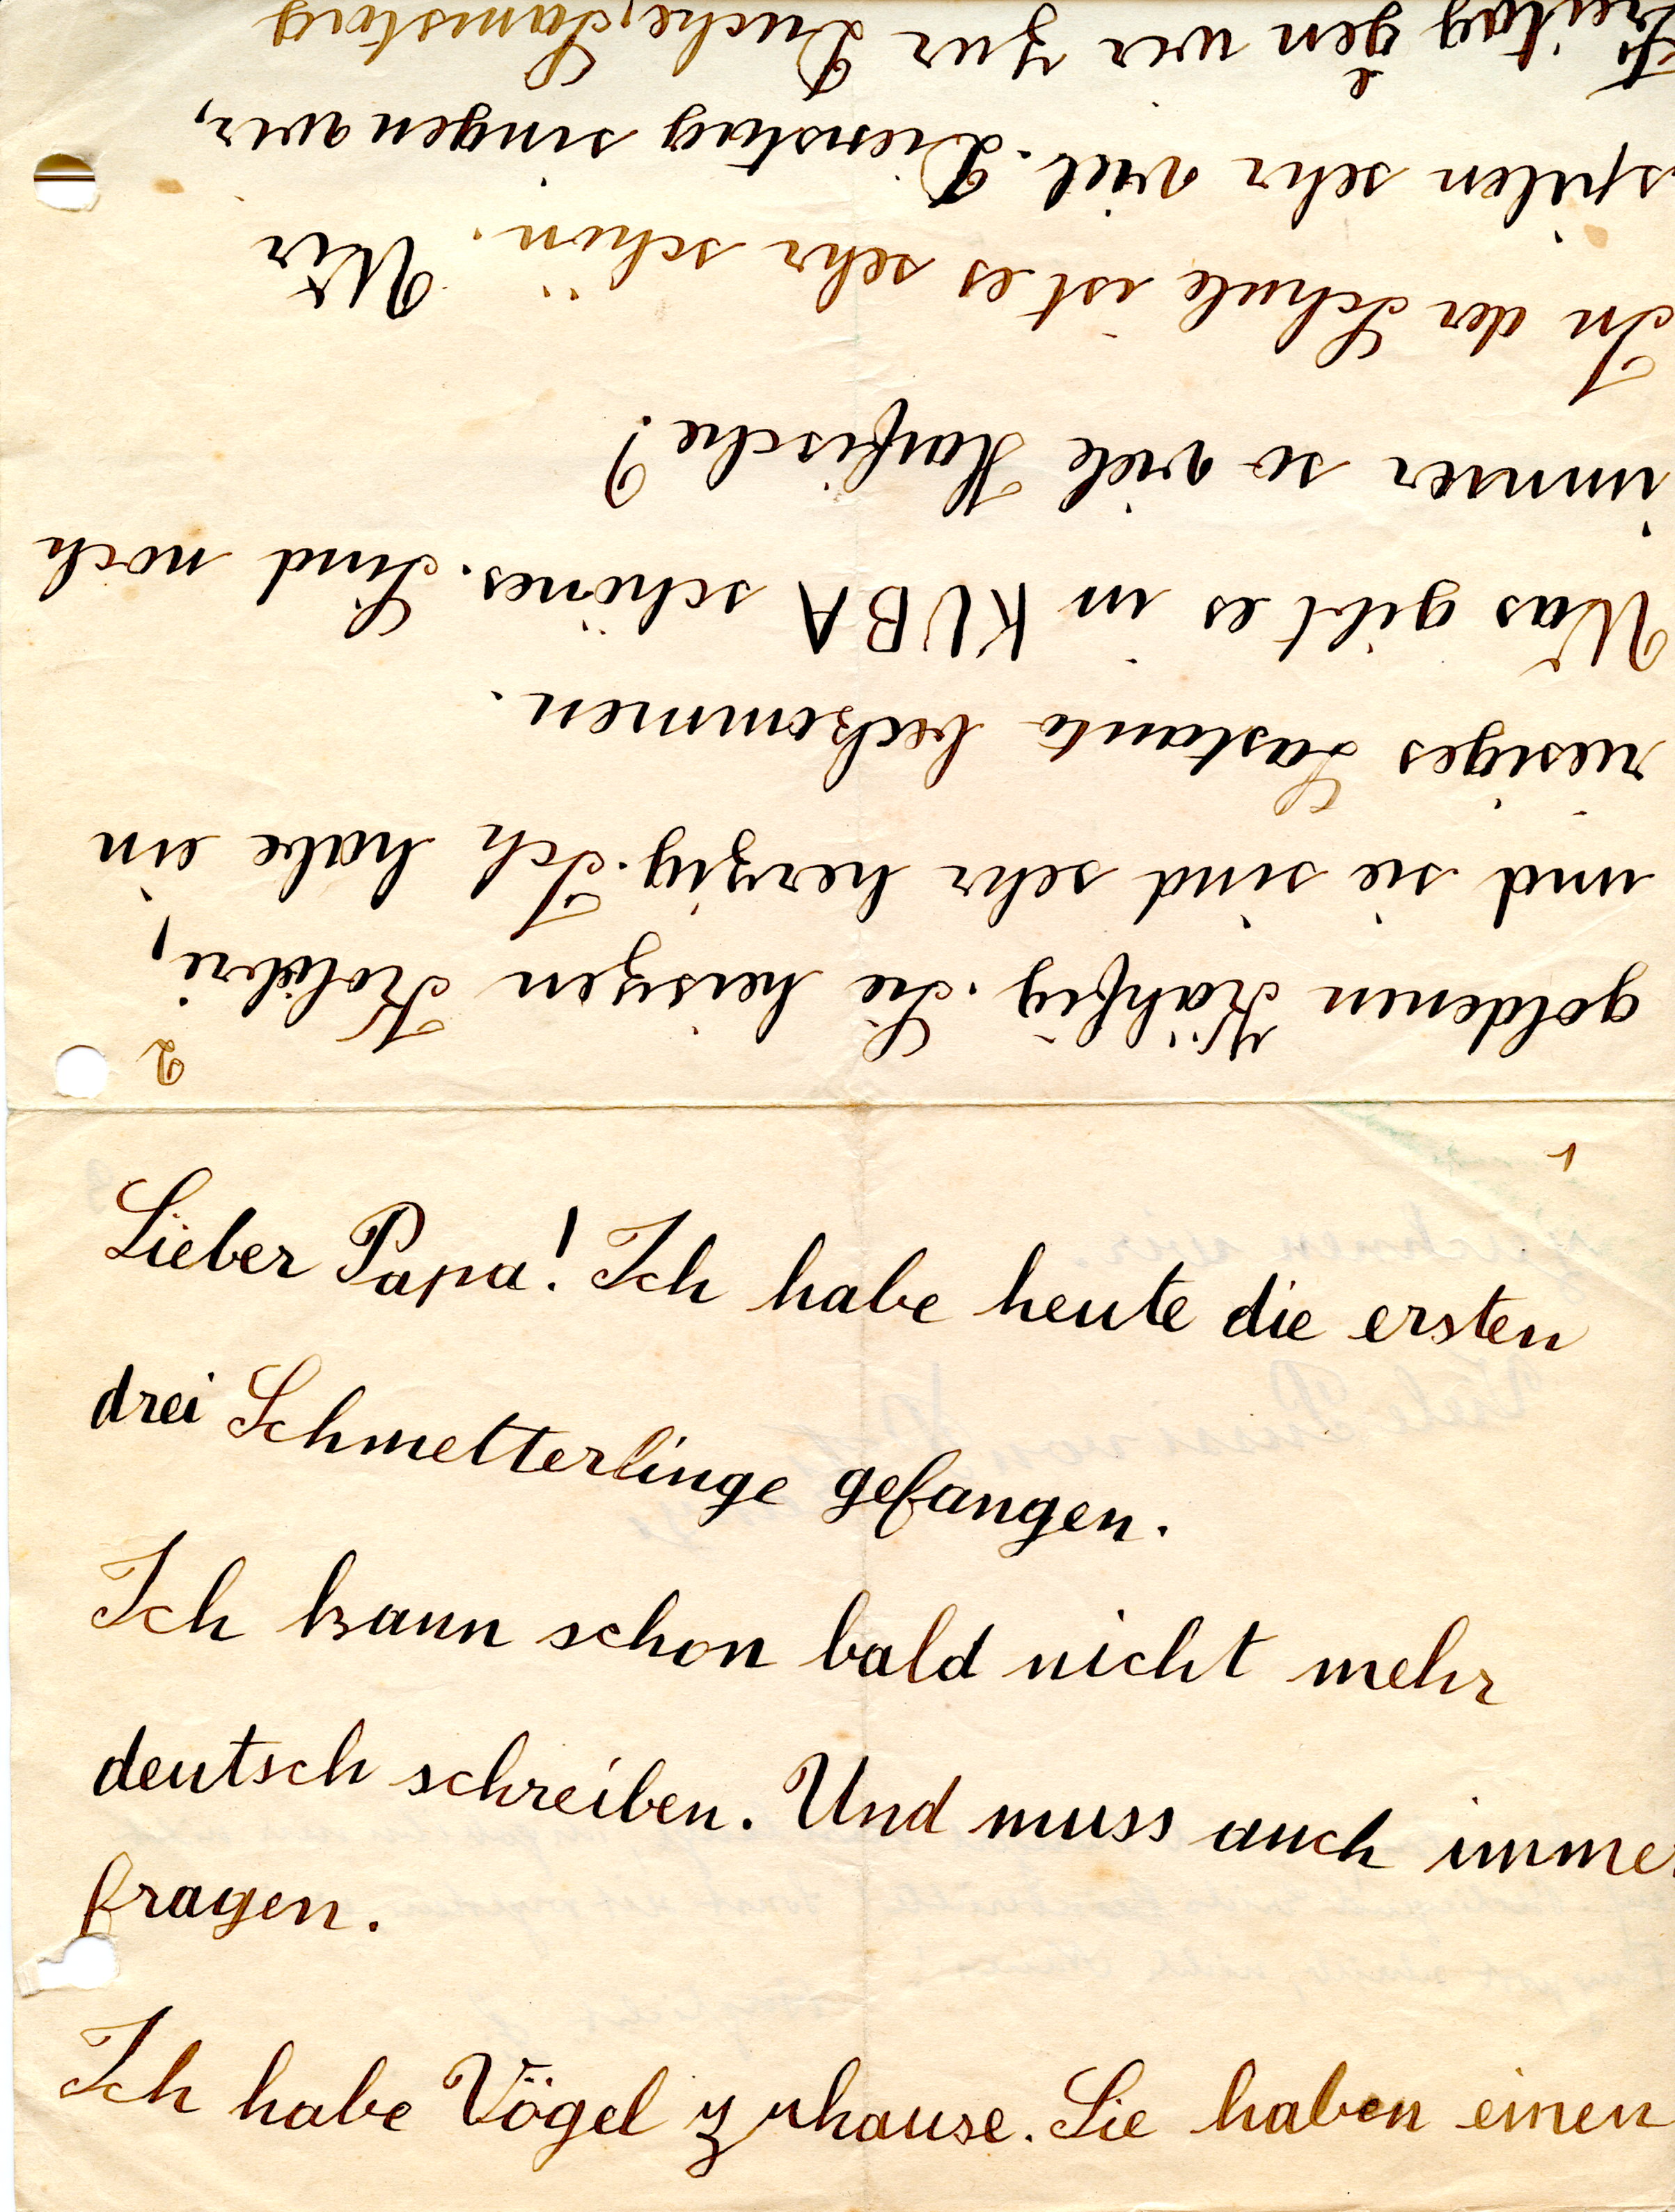 1
Lieber Papa! Ich habe heute die ersten
drei Schmetterlinge gefangen.
Ich kann schon bald nicht mehr
deutsch schreiben. Und muss auch immer
fragen.
Ich habe Vögel zuhause. Sie haben einen
2
goldenen Kähfig. Sie heiszen Kolibri,
und sie sind sehr herzig. Ich habe ein
riesiges Lastauto bekommen.
Was gibt es in KUBA schönes. Sind noch
immer so viele Haifische?
In der Schule ist es sehr schön. Wir
spilen sehr viel. Dienstag singen wir,
Freitag gen wir zur Duche, Samstag